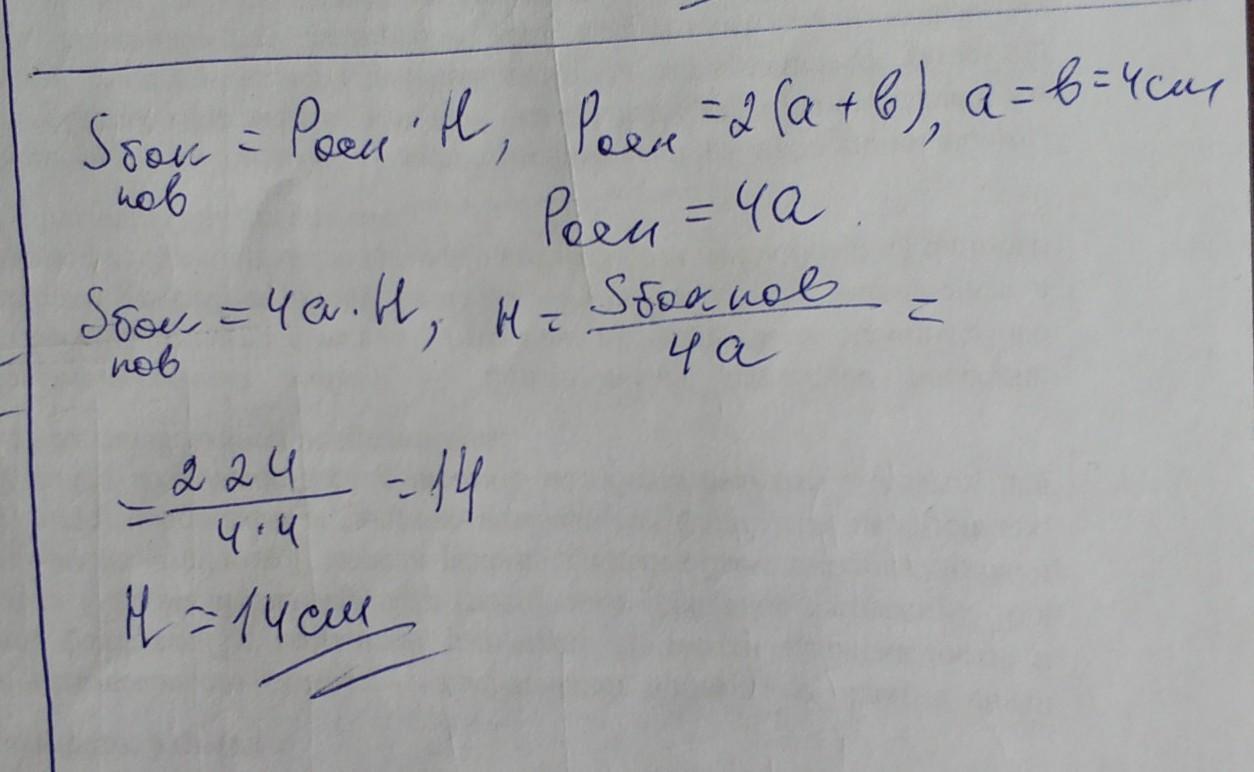 Sбок пов = Pосн · H, Pосн = 2(a + в), a = в = 4см
Pосн = 4a
Sбок пов = 4a · H, H = Sбок пов / 4a =
= 224 / 4·4 = 14
H = 14см